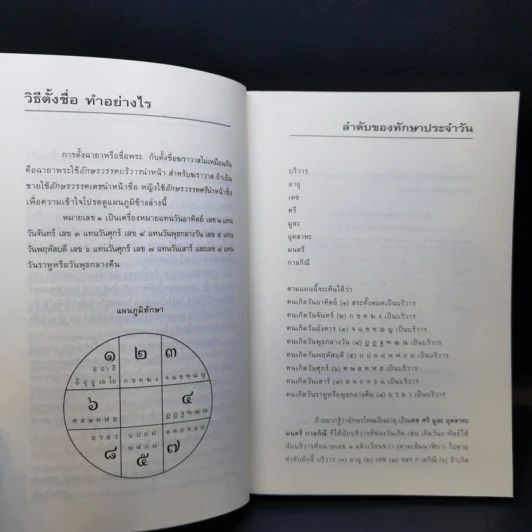 วิธีตั้งชื่อ ทำอย่างไร
การตั้งฉายาหรือชื่อพระ กับตั้งชื่อฆราวาสไม่เหมือนกัน
คือฉายาพระใช้อักษรวรรคบริวารนำหน้า สำหรับฆราวาส ถ้าเป็น
ชายใช้อักษรวรรคเดชนำหน้าชื่อ หญิงใช้อักษรวรรคศรีนำหน้าชื่อ
เพื่อความเข้าใจโปรดดูแผนภูมิข้างล่างนี้
หมายเลข ๑ เป็นเครื่องหมายแทนวันอาทิตย์ เลข ๒ แทน
วันจันทร์ เลข ๓ แทนวันศุกร์ เลข ๔ แทนวันพุธกลางวัน เลข ๕ แทน
วันพฤหัสบดี เลข ๖ แทนวันศุกร์ เลข ๗ แทนวันเสาร์ และเลข ๘ แทน
วันราหูหรือวันพุธกลางคืน
แผนภูมิทักษา
๑ ๒ ๓
อ อา อิ
อี อุ อู เอ โอ ก ข ค ฆ ง จ ฉ ช ซ ฌ ญ
๖ ๔
ศ ส ษ ห ฬ ฮ ฎ ฏ ฐ ฑ ฒ ณ
ย ร ล ว บ ป ผ ฝ ด ต ถ ท ธ น
พ ฟ ภ ม
๘ ๕ ๗
ลำดับของทักษาประจำวัน
บริวาร
อายุ
เดช
ศรี
มูละ
อุตสาหะ
มนตรี
กาลกิณี
ตามแผนนี้จะเห็นได้ว่า
คนเกิดวันอาทิตย์ (๑) สระทั้งหมดเป็นบริวาร
คนเกิดวันจันทร์ (๒) ก ข ค ฆ ง เป็นบริวาร
คนเกิดวันอังคาร (๓) จ ฉ ช ซ ฌ ญ เป็นบริวาร
คนเกิดวันพุธกลางวัน (๔) ฎ ฏ ฐ ฑ ฒ ณ เป็นบริวาร
คนเกิดวันพฤหัสบดี (๕) บ ป ผ ฝ พ ฟ ภ ม เป็นบริวาร
คนเกิดวันศุกร์ (๖) ศ ษ ส ห ฬ ฮ เป็นบริวาร
คนเกิดวันเสาร์ (๗) ด ต ถ ท ธ น เป็นบริวาร
คนเกิดวันราหูหรือวันพุธกลางคืน (๘) ย ร ล ว เป็นบริวาร
ถ้าอยากรู้ว่าอักษรไหนเป็นอายุ เป็นเดช ศรี มูละ อุตสาหะ
มนตรี กาลกิณี ก็ให้นับบริวารที่ช่องวันเกิด เช่น เกิดวันอาทิตย์ให้
นับบริวารที่หมายเลข ๑ แล้วเวียนขวา (ตามเข็มนาฬิกา) ไปตาม
ลำดับดังนี้ บริวาร (๑) อายุ (๒) เดช (๓) ฯลฯ กาลกิณี (๖) ถ้าเกิด